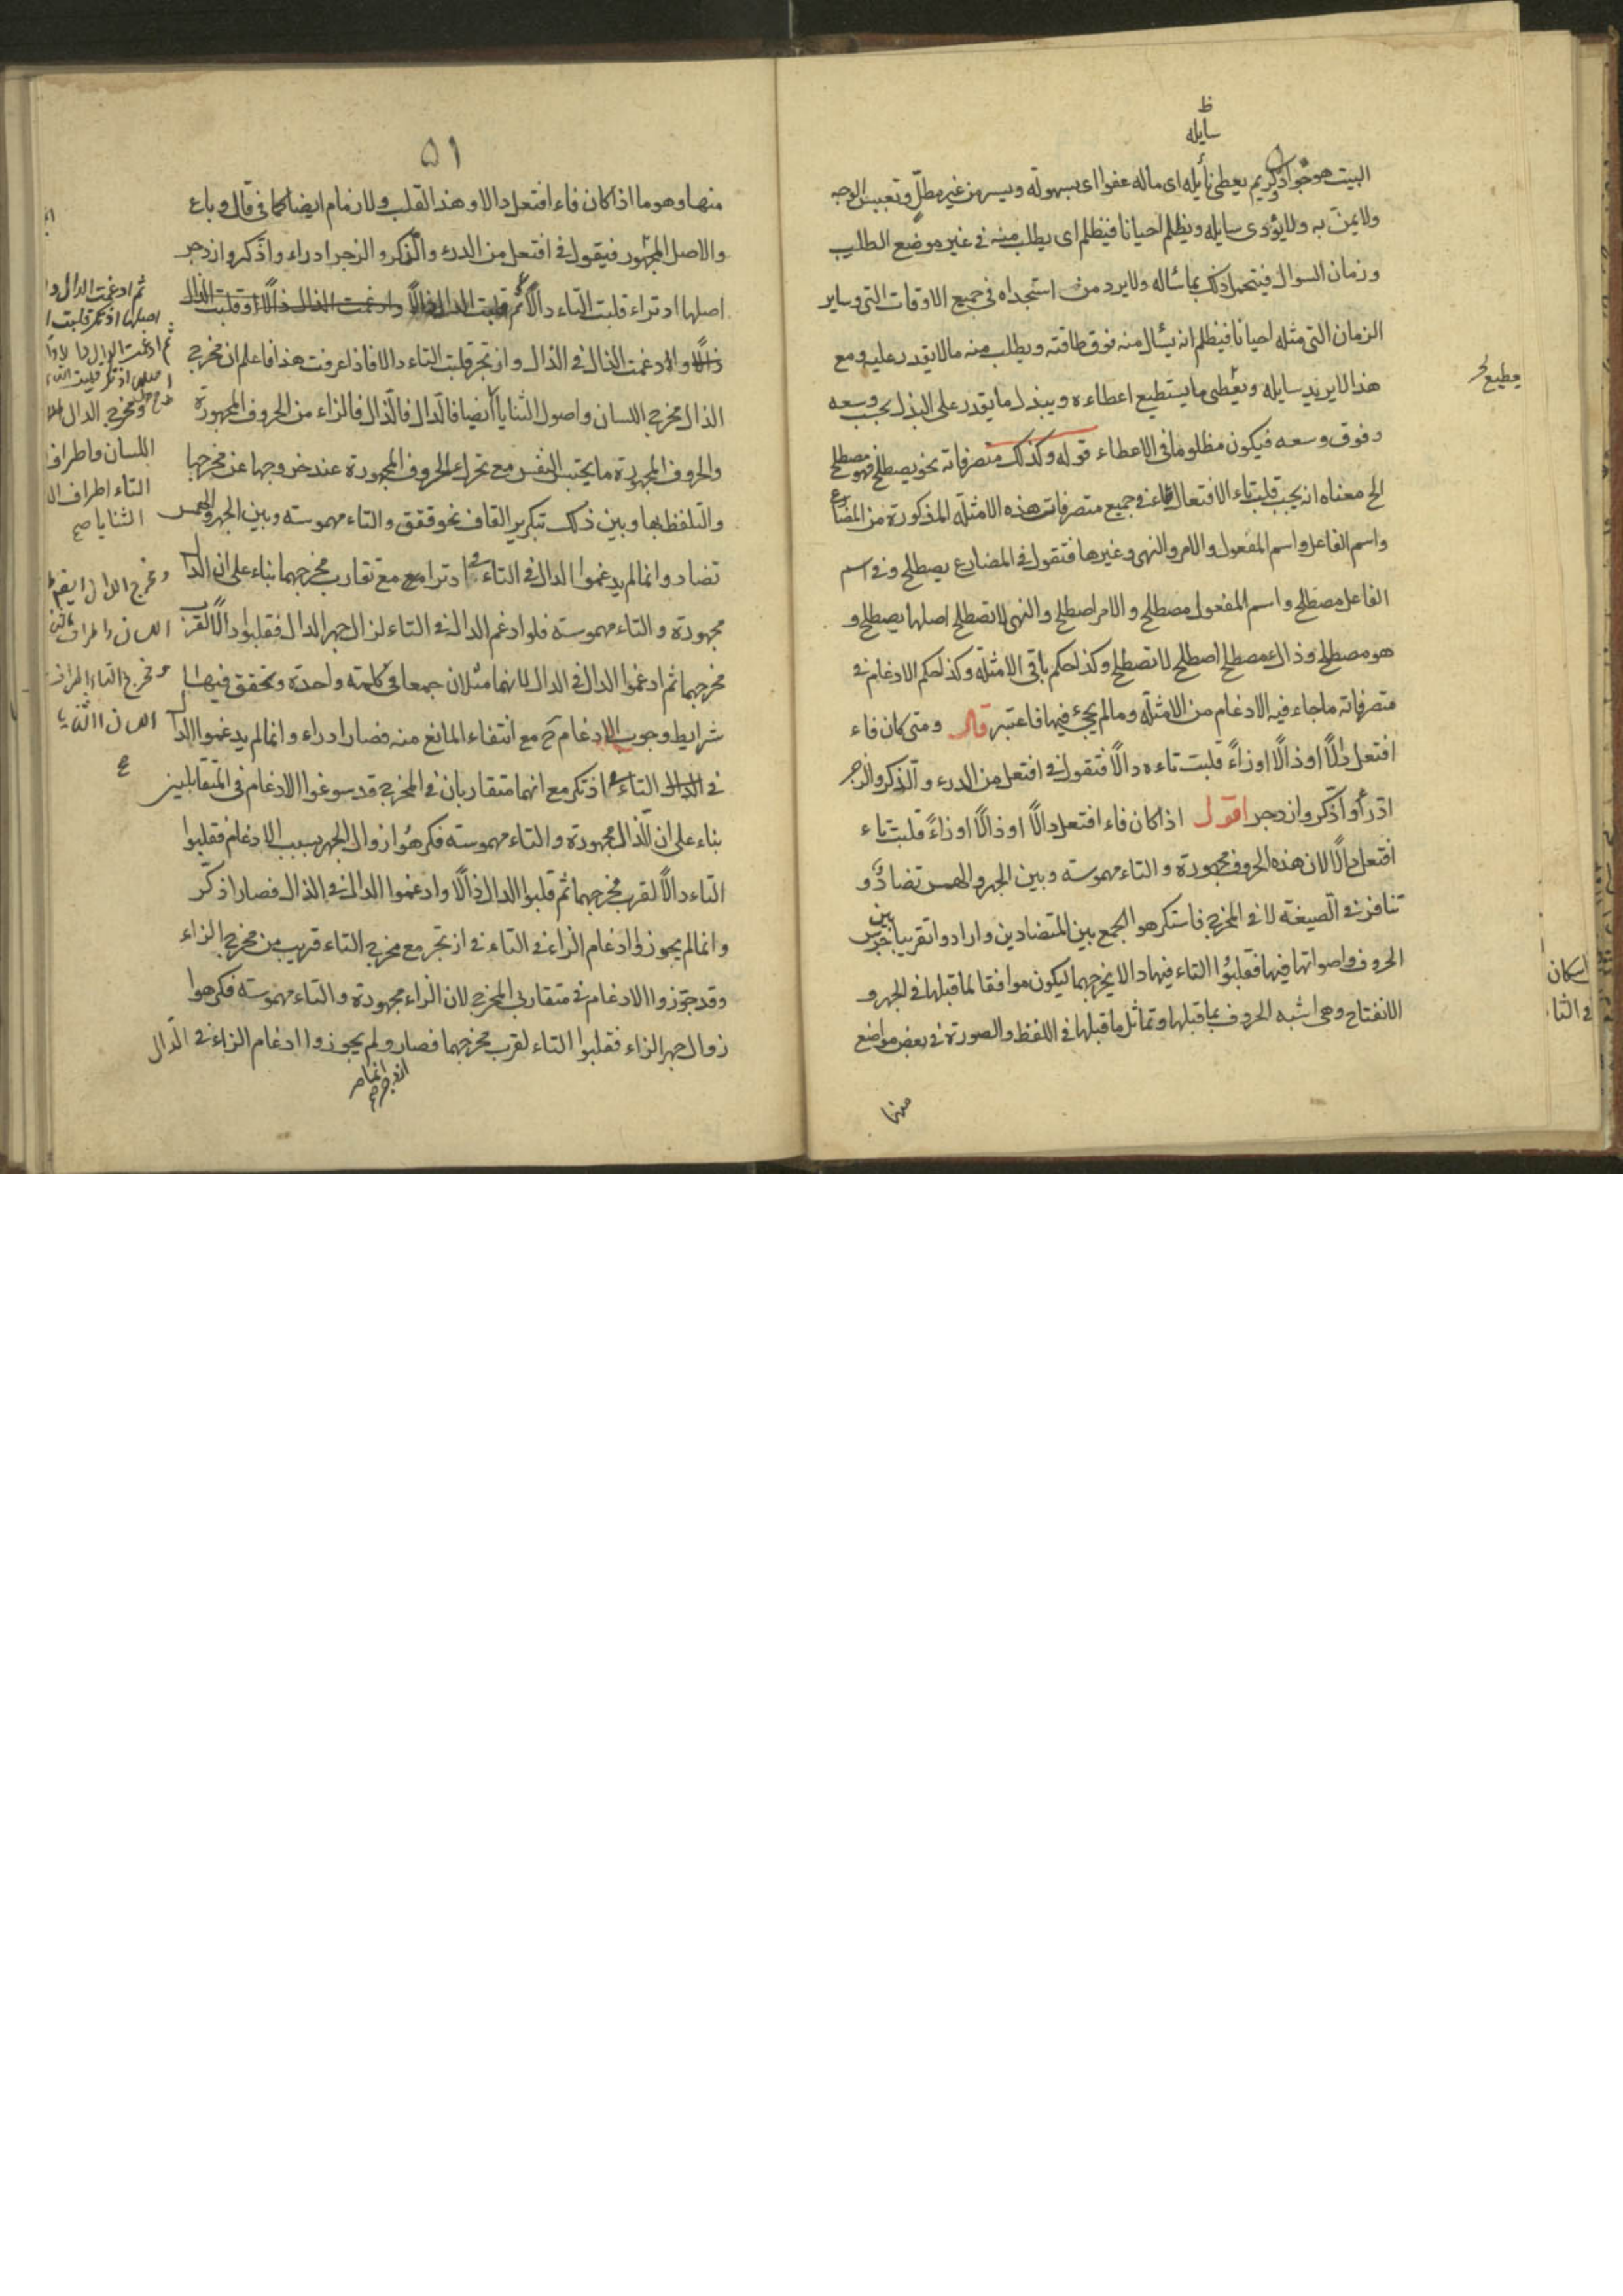 ظ
سايله
البيت هو جواد كريم يعطى نايله اى ماله عفوا اى بسهولة ويسر من غير مطل وتعبيس الوجه
ولا يمن به ولا يؤذى سايله ويظلم احيانا فيظلم اى يطلب منه فى غير موضع الطلب
وزمان السوال فيتحمل ذلك بما سأله ولا يرد من استجداه فى جميع الاوقات التى وساير
الزمان التى مثله احيانا فيظلم انه يسأل منه فوق طاقته ويطلب منه ما لا يقدر عليه ومع
هذا لا يريد سايله ويعطى ما يستطيع اعطاءه ويبذل ما يقدر على البذل بحسب وسعه
وفوق وسعه فيكون مظلوما فى الاعطاء قوله وكذلك متصرفاته نحو يصطلح فهو مصطلح
الخ معناه انه يجب قلب تاء الافتعال طاء فى جميع متصرفات هذه الامثلة المذكورة من المضارع
واسم الفاعل واسم المفعول والامر والنهى وغيرها فتقول فى المضارع يصطلح وفى اسم
الفاعل مصطلح واسم المفعول مصطلح والامر اصطلح والنهى لا تصطلح اصلها يصتلح و
هو مصتلح وذاك مصتلح اصتلح لا تصتلح وكذا حكم باقى الامثلة وكذا حكم الادغام فى
متصرفاته ما جاء فيه الادغام من الامثلة وما لم يجئ فيها فاعتبر قال ومتى كان فاء
افتعل دالًا او ذالًا او زاءً قلبت تاءه دالًا فتقول فى افتعل من الدرء والذكر والزجر
ادّرأ واذّكر وازدجر اقول اذا كان فاء افتعل دالًا او ذالًا او زاءً قلبت تاء
افتعل دالًا لان هذه الحروف مجهورة والتاء مهموسة وبين الجهر والهمس تضادّ و
تنافر فى الصيغة لا فى المخرج فاستكرهوا الجمع بين المتضادين وارادوا تقريبا بين جرس
الحروف واصواتها فيها فقلبوا التاء فيها دالا لمخرجهما ليكون موافقا لما قبلها فى الجهر و
الانفتاح وهى اشبه الحروف بما قبلها وتماثل ما قبلها فى اللفظ والصورة فى بعض مواضع
منها
يطيع
اسكان
فى الثا
٥١
منها وهو ما اذا كان فاء افتعل دالا وهذا القلب ولازمام ايضا كما فى قال وباع
والاصل المجهور فيقول فى افتعل من الدرء والذكر والزجر ادراء واذكر وازدجر
اصلها ادتراء قلبت التاء دالًا ثم قلبت الدال ذالًا وادغمت الذال ذالًا او قلبت الذال
دالًا والادغمت الذال فى الذال وازتجر قلبت التاء دالا فاذا عرفت هذا فاعلم ان مخرج
الذال مخرج اللسان واصول الثنايا ايضا فالدال فالذال فالزاء من الحروف المجهورة
والحروف المجهورة ما يحتبس النفس مع تحرك الحروف المجهورة عند خروجها عن مخرجها
والتلفظ بها وبين ذلك تبكرير القاف نحو ققق والتاء مهموسة وبين الجهر والهمس
تضاد وانما لم يدغموا الدال فى التاء فى ادترا مع تقارب مخرجهما بناء على ان الدال
مجهورة والتاء مهموسة فلو ادغم الدال فى التاء لزال جهر الدال فقلبوا دالًا لقرب
مخرجهما ثم ادغموا الدال فى الدال لانهما مثلان جمعا فى كلمة واحدة وتحقق فيها
شرايط وجوب الادغام ح مع انتفاء المانع منه فصار ادراء وانما لم يدغموا الذال
فى التاء فى اذتكر مع انهما متقاربان فى المخرج قد سوغوا الادغام فى المتقابلين
بناء على ان الذال مجهورة والتاء مهموسة فكرهوا زوال الجهر بسبب الادغام فقلبوا
التاء دالًا لقرب مخرجهما ثم قلبوا الدال ذالًا وادغموا الذال فى الذال فصار اذكّر
وانما لم يجوزوا ادغام الزاء فى التاء فى ازتجر مع مخرج التاء قريب من مخرج الزاء
وقد جوزوا الادغام فى متقاربى المخرج لان الزاء مجهورة والتاء مهموسة فكرهوا
زوال جهر الزاء فقلبوا التاء لقرب مخرجهما فصار ولم يجوزوا ادغام الزاء فى الدال
ازدجر
ثم ادغمت الدال
اصلها اذتكر قلبت
ثم ادغمت
ومخرج الدال
اللسان واطراف
التاء اطراف ال
الثنايا صح
ومخرج الدال ايضا
اللسان واطراف
ومخرج التاء اطراف
اللسان الثنايا